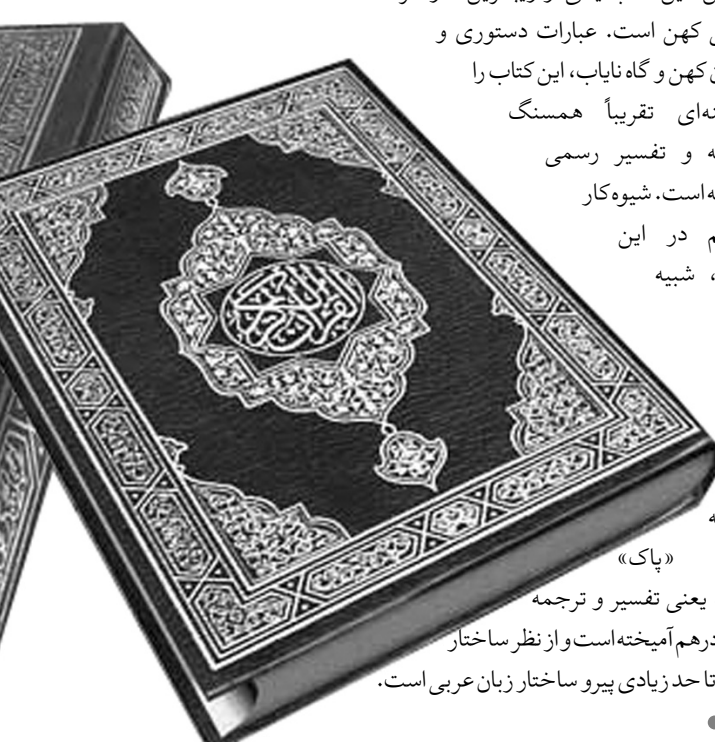 کهن است. عبارات دستوری و
کهن و گاه نایاب، این کتاب را
تقریباً همسنگ
و تفسیر رسمی
است. شیوه‌کار
در این
، شبیه
القرآن الکریم
«پاک»
یعنی تفسیر و ترجمه
درهم آمیخته‌است و از نظر ساختار
تا حد زیادی پیرو ساختار زبان عربی است.